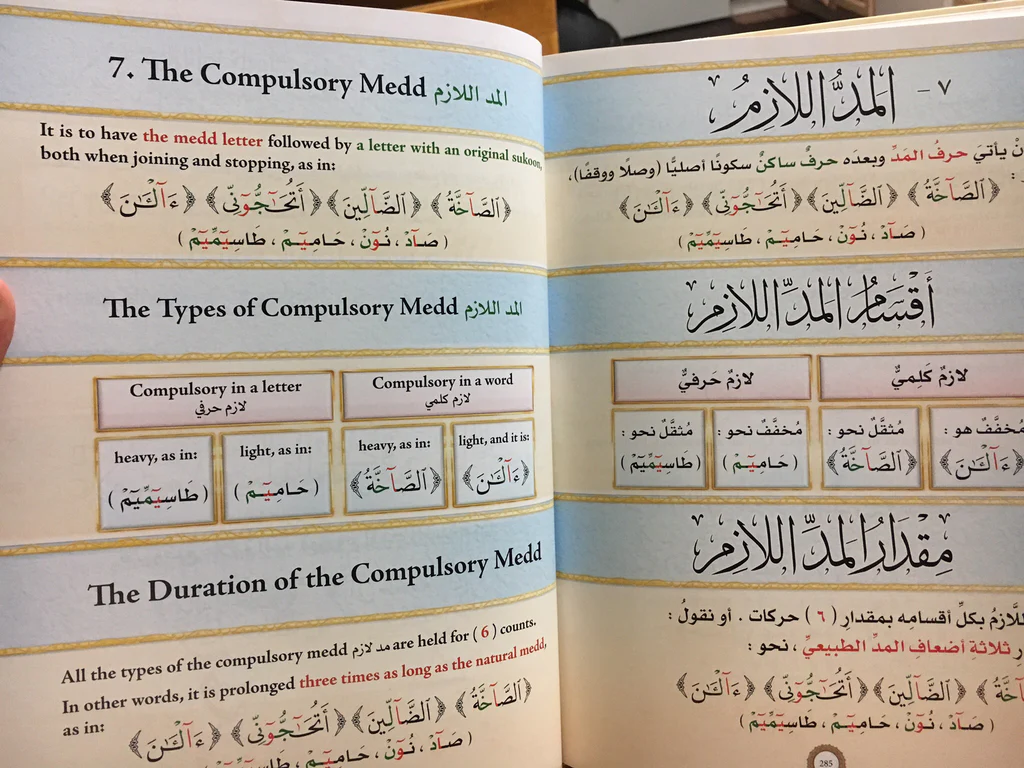 7. The Compulsory Medd المد اللازم
It is to have the medd letter followed by a letter with an original sukoon,
both when joining and stopping, as in:
﴿ ٱلصَّآخَّةُ ﴾ ﴿ ٱلضَّآلِّينَ ﴾ ﴿ أَتُحَـٰٓجُّوٓنِّى ﴾ ﴿ ءَآلْـَٔـٰنَ ﴾
( صَآدْ ، نُوٓنْ ، حَامِيٓـمْ ، طَاسِيٓمِّيٓمْ )
The Types of Compulsory Medd المد اللازم
Compulsory in a letter
لازم حرفي
Compulsory in a word
لازم كلمي
heavy, as in:
( طَاسِيٓمِّيٓمْ )
light, as in:
( حَامِيٓـمْ )
heavy, as in:
﴿ ٱلصَّآخَّةُ ﴾
light, and it is:
﴿ ءَآلْـَٔـٰنَ ﴾
The Duration of the Compulsory Medd
All the types of the compulsory medd مد لازم are held for ( 6 ) counts.
In other words, it is prolonged three times as long as the natural medd,
as in:
﴿ ٱلصَّآخَّةُ ﴾ ﴿ ٱلضَّآلِّينَ ﴾ ﴿ أَتُحَـٰٓجُّوٓنِّى ﴾ ﴿ ءَآلْـَٔـٰنَ ﴾
( صَآدْ ، نُوٓنْ ، حَامِيٓـمْ ، طَاسِيٓمِّيٓمْ )
٧ - المَدُّ اللازِمُ
يأتيَ حرفُ المَدِّ وبعدَه حرفٌ ساكنٌ سكونًا أصليًّا (وصلًا ووقفًا)،
﴿ ٱلصَّآخَّةُ ﴾ ﴿ ٱلضَّآلِّينَ ﴾ ﴿ أَتُحَـٰٓجُّوٓنِّى ﴾ ﴿ ءَآلْـَٔـٰنَ ﴾
( صَآدْ ، نُوٓنْ ، حَامِيٓـمْ ، طَاسِيٓمِّيٓمْ )
أَقْسَامُ المَدِّ اللازِمِ
لازمٌ كَلِميٌّ
لازمٌ حَرفيٌّ
مُخفَّفٌ هو :
﴿ ءَآلْـَٔـٰنَ ﴾
مُثقَّلٌ نحو :
﴿ ٱلصَّآخَّةُ ﴾
مُخفَّفٌ نحو :
( حَامِيٓـمْ )
مُثقَّلٌ نحو :
( طَاسِيٓمِّيٓمْ )
مِقْدَارُ المَدِّ اللازِمِ
اللَّازمُ بكلِّ أقسامِه بمقدارِ ( ٦ ) حركات . أو نقولُ :
ثلاثةِ أضعافِ المدِّ الطبيعيِّ ، نحو :
﴿ ٱلضَّآلِّينَ ﴾ ﴿ أَتُحَـٰٓجُّوٓنِّى ﴾ ﴿ ءَآلْـَٔـٰنَ ﴾
( صَآدْ ، نُوٓنْ ، حَامِيٓـمْ ، طَاسِيٓمِّيٓمْ )
285